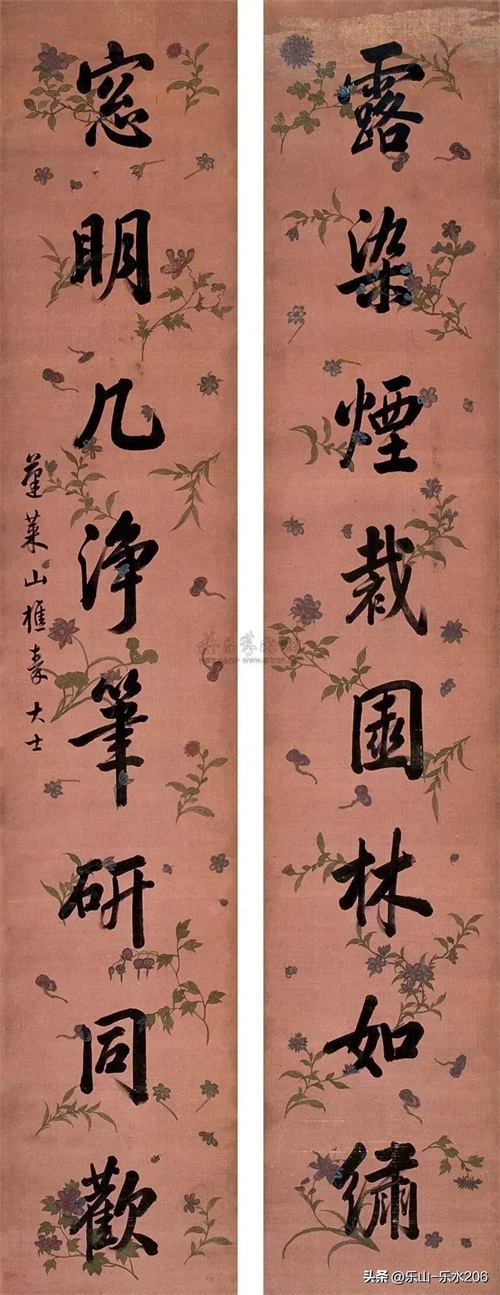 露染煙裁園林如繡
窓明几淨筆研同歡
蓬萊山樵秦大士
头条 @乐山-乐水206